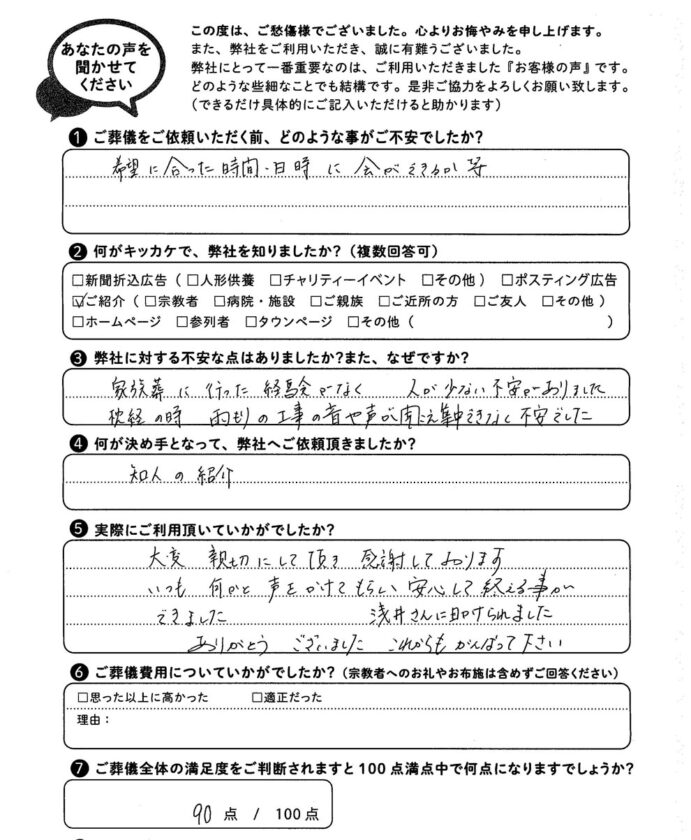 あなたの声を
聞かせて
ください
この度は、ご愁傷様でございました。心よりお悔やみを申し上げます。
また、弊社をご利用いただき、誠に有難うございました。
弊社にとって一番重要なのは、ご利用いただきました『お客様の声』です。
どのような些細なことでも結構です。是非ご協力をよろしくお願い致します。
(できるだけ具体的にご記入いただけると助かります)
❶ ご葬儀をご依頼いただく前、どのような事がご不安でしたか?
希望に合った時間・日時に会ができるか等
❷ 何がキッカケで、弊社を知りましたか?(複数回答可)
□新聞折込広告(□人形供養 □チャリティーイベント □その他) □ポスティング広告
☑ご紹介(□宗教者 □病院・施設 □ご親族 □ご近所の方 □ご友人 □その他)
□ホームページ □参列者 □タウンページ □その他( )
❸ 弊社に対する不安な点はありましたか?また、なぜですか?
家族葬に行った経験がなく 人が少ない不安がありました
枕経の時 雨もりの工事の音や声が聞こえ集中できなく不安でした
❹ 何が決め手となって、弊社へご依頼頂きましたか?
知人の紹介
❺ 実際にご利用頂いていかがでしたか?
大変 親切にして頂き 感謝しております
いつも 何かと声をかけてもらい 安心して終える事が
できました 浅井さんに助けられました
ありがとう ございました これからも がんばって下さい
❻ ご葬儀費用についていかがでしたか?(宗教者へのお礼やお布施は含めずご回答ください)
□思った以上に高かった □適正だった
理由:
❼ ご葬儀全体の満足度をご判断されますと100点満点中で何点になりますでしょうか?
90 点 / 100点